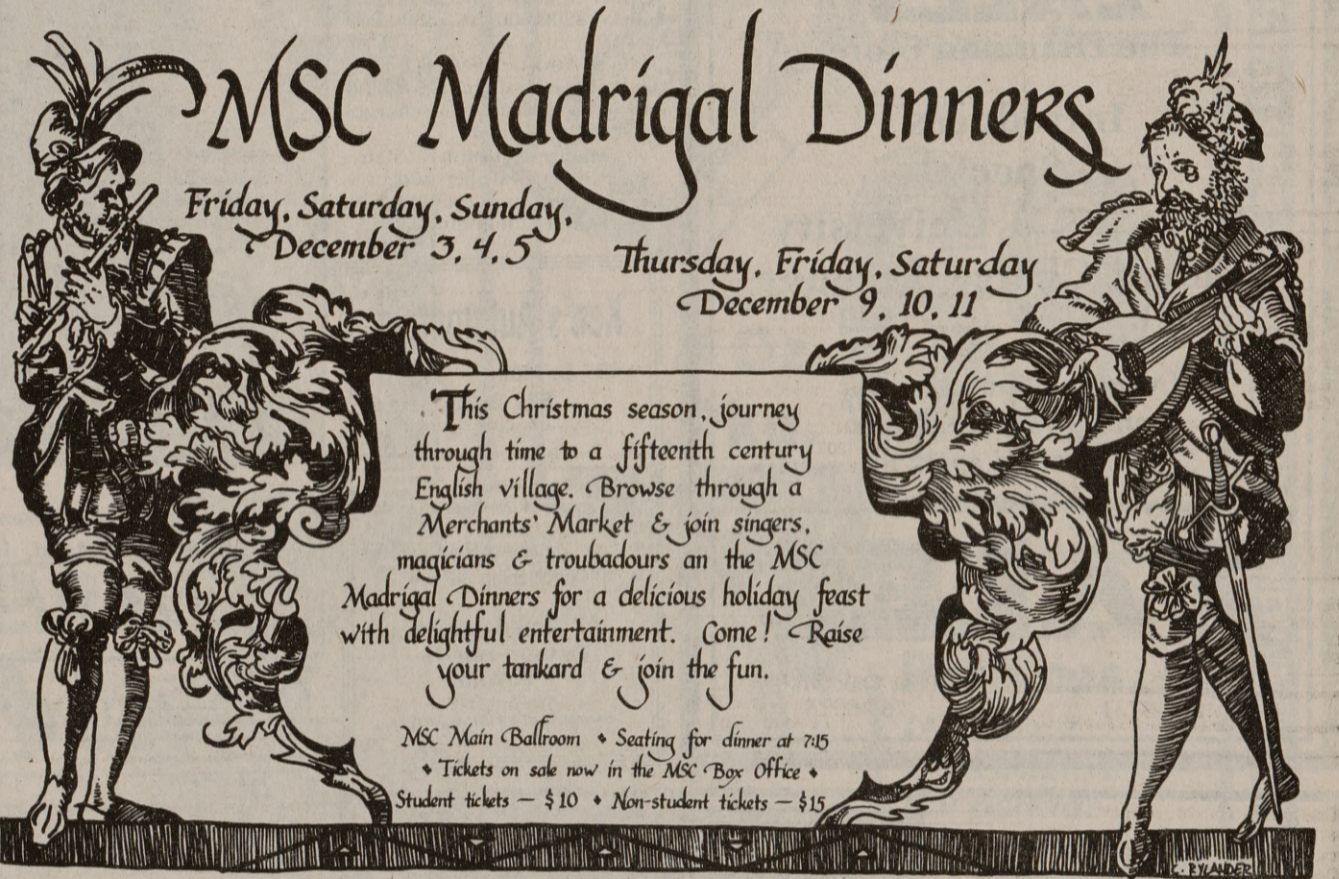 MSC Madrigal Dinners
Friday, Saturday, Sunday,
December 3, 4, 5
Thursday, Friday, Saturday
December 9, 10, 11
This Christmas season, journey
through time to a fifteenth century
English village. Browse through a
Merchants' Market & join singers,
magicians & troubadours an the MSC
Madrigal Dinners for a delicious holiday feast
with delightful entertainment. Come! Raise
your tankard & join the fun.
MSC Main Ballroom ♦ Seating for dinner at 7:15
♦ Tickets on sale now in the MSC Box Office ♦
Student tickets — $10 ♦ Non-student tickets — $15
C. RYLANDER